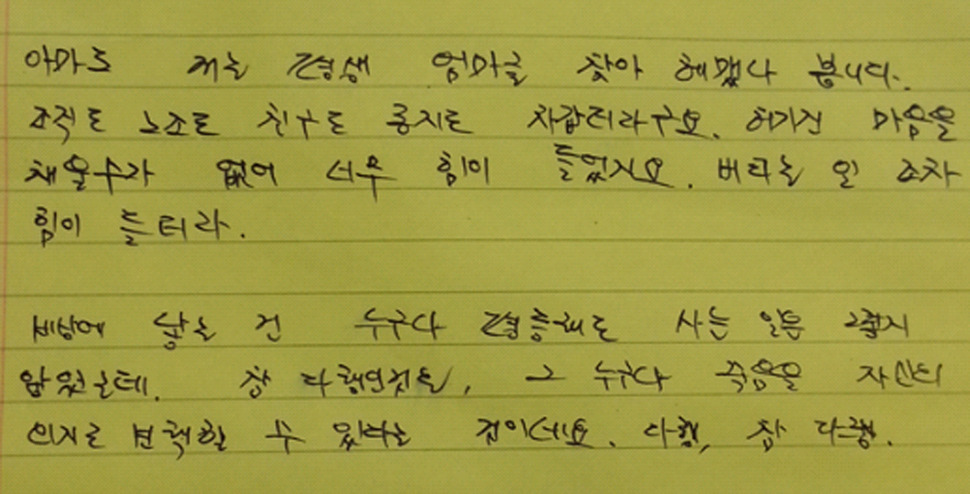 아마도 저는 평생 엄마를 찾아 헤맸나 봅니다.
조직도 노조도 친구도 동지도 차갑더라구요. 허기진 마음을
채울수가 없어 너무 힘이 들었지요. 버티는 일 조차
힘이 들더라.
세상에 낳는 건 누구나 평등해도 사는 일은 그렇지
않았는데. 참 다행인것은, 그 누구나 죽음을 자신의
의지로 선택할 수 있다는 점이네요. 다행, 참 다행.